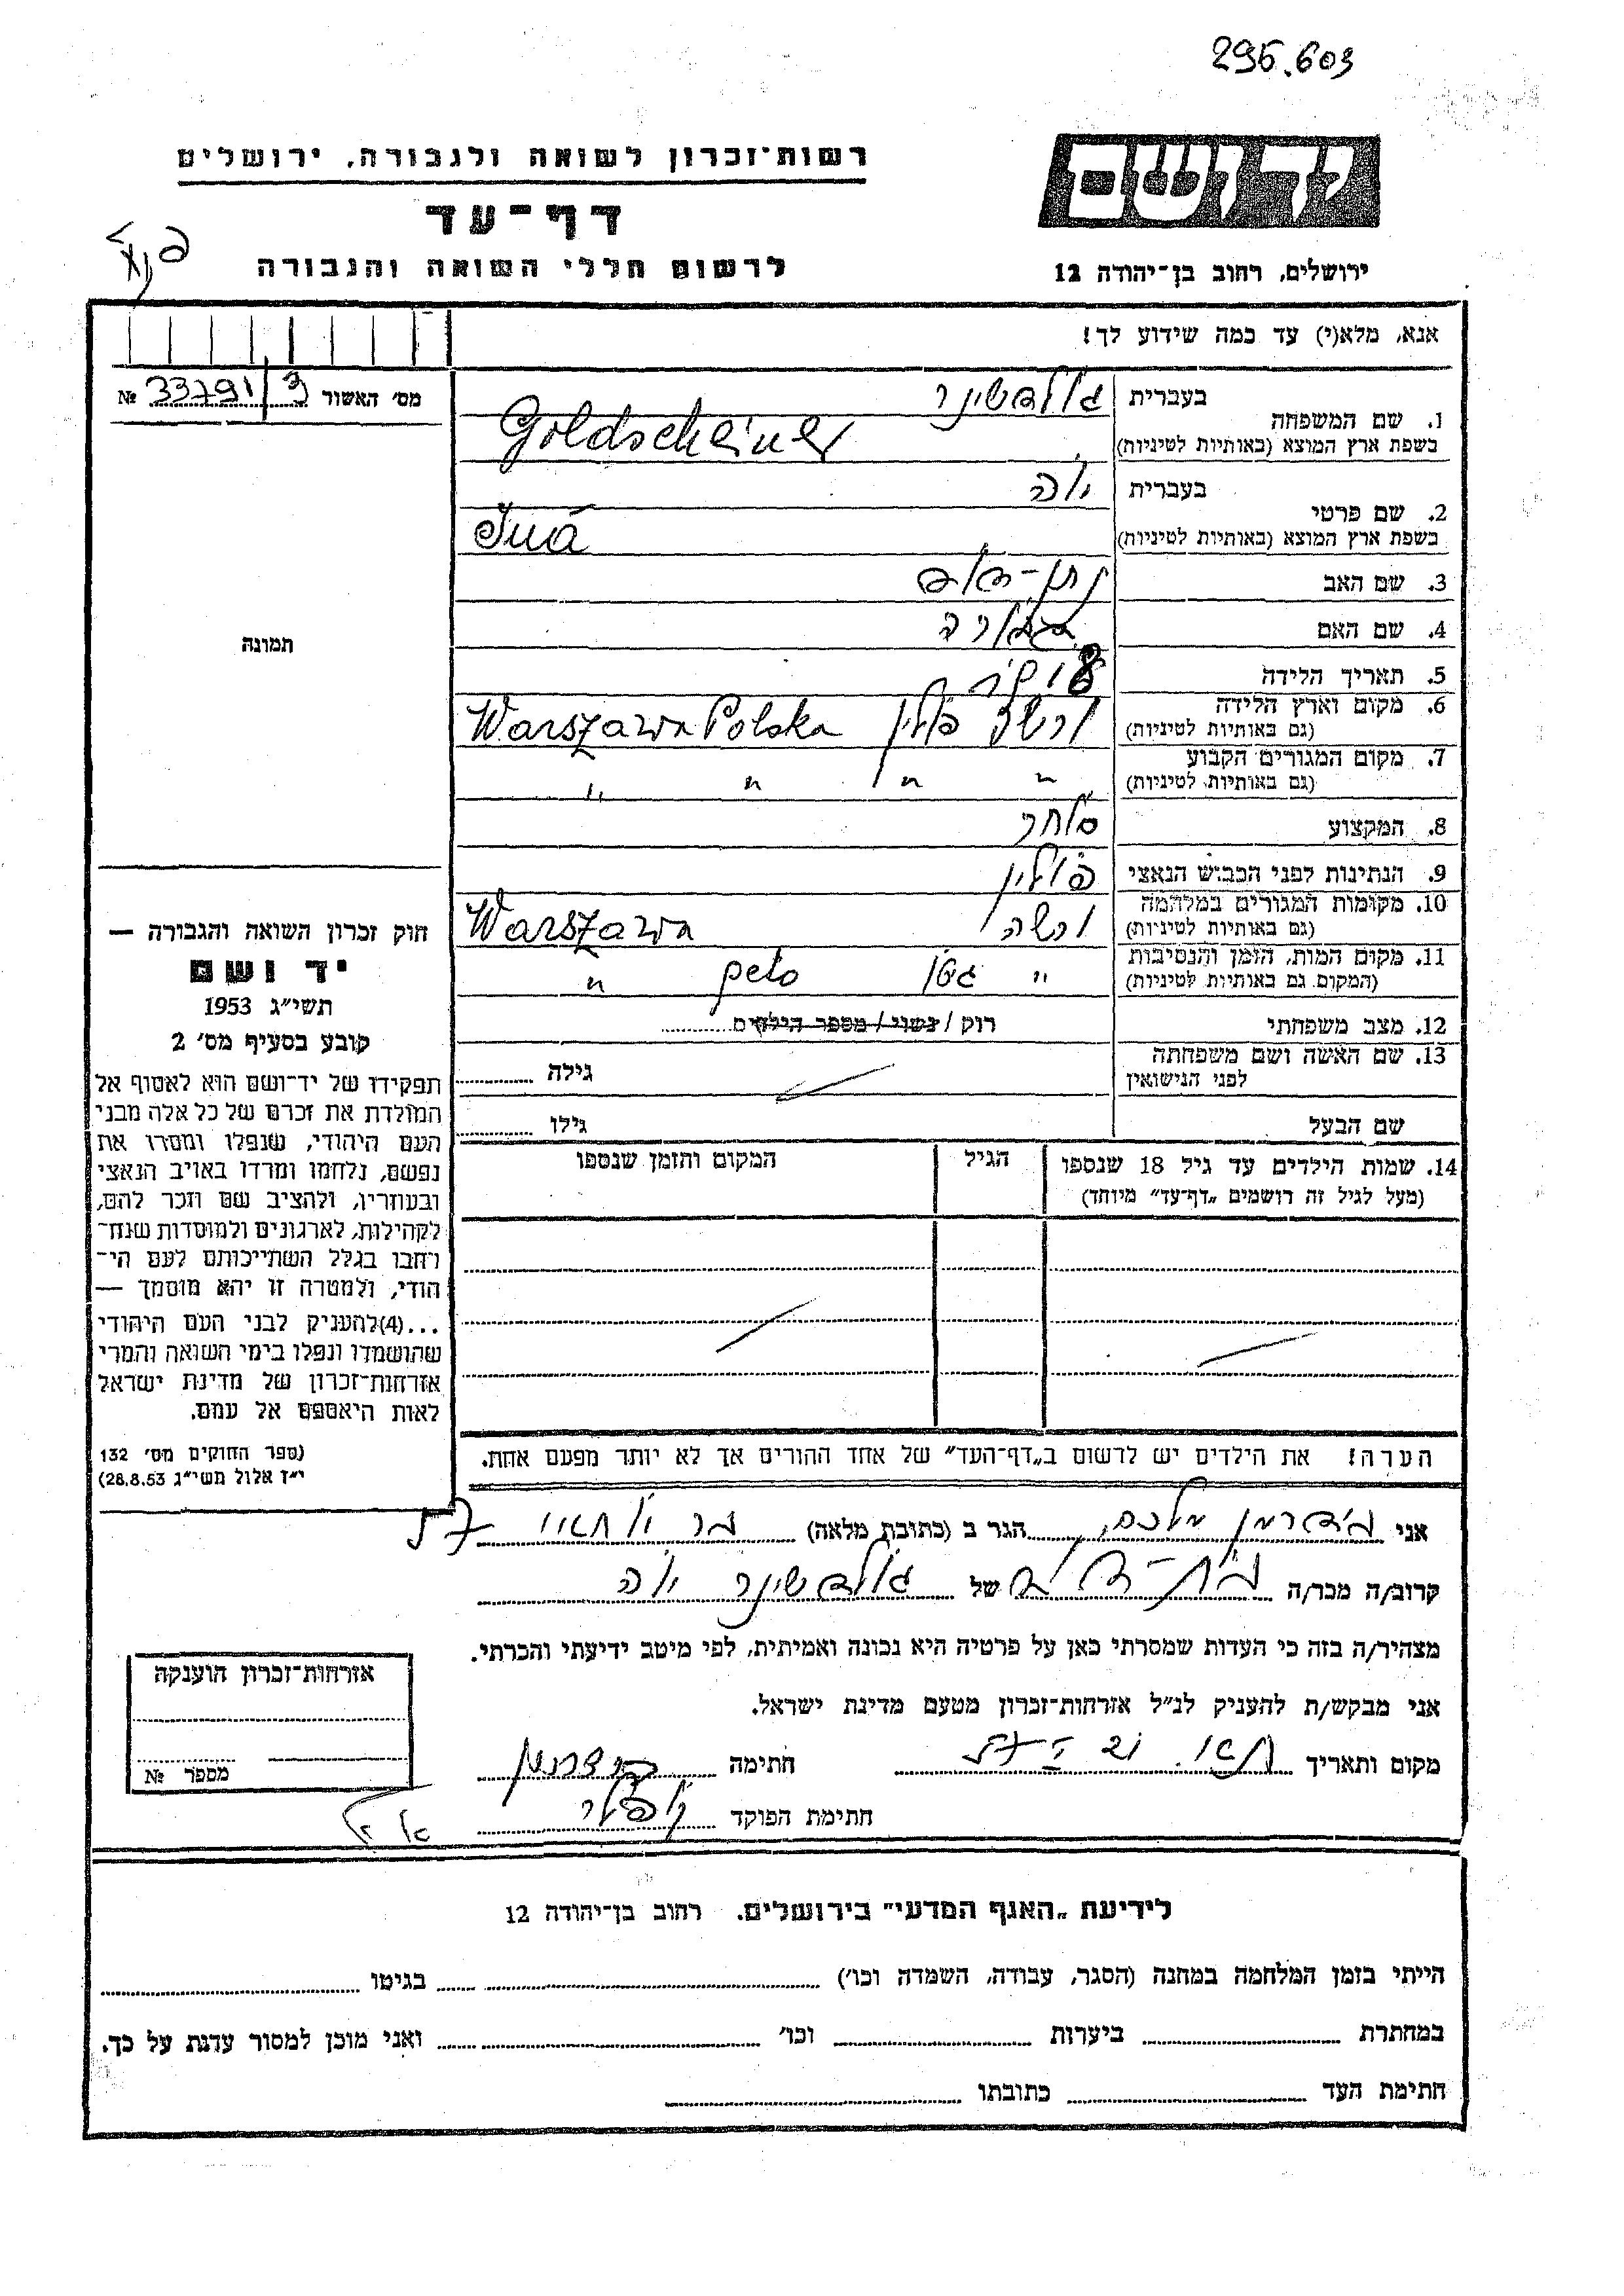 295.603
רשות־זכרון לשואה ולגבורה, ירושלים
יד ושם
דף־עד
לרשום חללי השואה והגבורה
ירושלים, רחוב בן־יהודה 12
אנא, מלא(י) עד כמה שידוע לך!
מס׳ האשור 33791/3 №
1. שם המשפחה
בעברית גולדשינר
בשפת ארץ המוצא (באותיות לטיניות) Goldscheiner
2. שם פרטי
בעברית
בשפת ארץ המוצא (באותיות לטיניות)
3. שם האב
4. שם האם
5. תאריך הלידה
6. מקום וארץ הלידה
(גם באותיות לטיניות) ורשה פולין Warszawa Polska
7. מקום המגורים הקבוע
(גם באותיות לטיניות) " " " "
8. המקצוע סוחר
9. הנתינות לפני הכבוש הנאצי פולין
10. מקומות המגורים במלחמה
(גם באותיות לטיניות) ורשה Warszawa
11. מקום המות, הזמן והנסיבות
(המקום גם באותיות לטיניות) " גטו geto "
12. מצב משפחתי רוק / נשוי / מספר הילדים
13. שם האשה ושם משפחתה
לפני הנישואין גילה
שם הבעל גילו
14. שמות הילדים עד גיל 18 שנספו
(מעל לגיל זה רושמים „דף־עד״ מיוחד)
הגיל
המקום והזמן שנספו
הערה! את הילדים יש לרשום ב„דף־העד״ של אחד ההורים אך לא יותר מפעם אחת.
תמונה
חוק זכרון השואה והגבורה —
יד ושם
תשי״ג 1953
קובע בסעיף מס׳ 2
תפקידו של יד־ושם הוא לאסוף אל
המולדת את זכרם של כל אלה מבני
העם היהודי, שנפלו ומסרו את
נפשם, נלחמו ומרדו באויב הנאצי
ובעוזריו, ולהציב שם וזכר להם,
לקהילות, לארגונים ולמוסדות שנח־
רחבו בגלל השתייכותם לעם הי־
הודי, ולמטרה זו יהא מוסמך —
...(4)להעניק לבני העם היהודי
שהושמדו ונפלו בימי השואה והמרי
אזרחות־זכרון של מדינת ישראל
לאות היאספם אל עמם.
(ספר החוקים מס׳ 132
י״ז אלול תשי״ג 28.8.53)
אני הגר ב (כתובת מלאה)
קרוב/ה מכר/ה של גולדשינר
מצהיר/ה בזה כי העדות שמסרתי כאן על פרטיה היא נכונה ואמיתית, לפי מיטב ידיעתי והכרתי.
אני מבקש/ת להעניק לנ״ל אזרחות־זכרון מטעם מדינת ישראל.
מקום ותאריך חתימה
חתימת הפוקד
אזרחות־זכרון הוענקה
מספר №
לידיעת „האגף המדעי״ בירושלים. רחוב בן־יהודה 12
הייתי בזמן המלחמה במחנה (הסגר, עבודה, השמדה וכו׳) בגיטו
במחתרת ביערות וכו׳ ואני מוכן למסור עדות על כך.
חתימת העד כתובתו